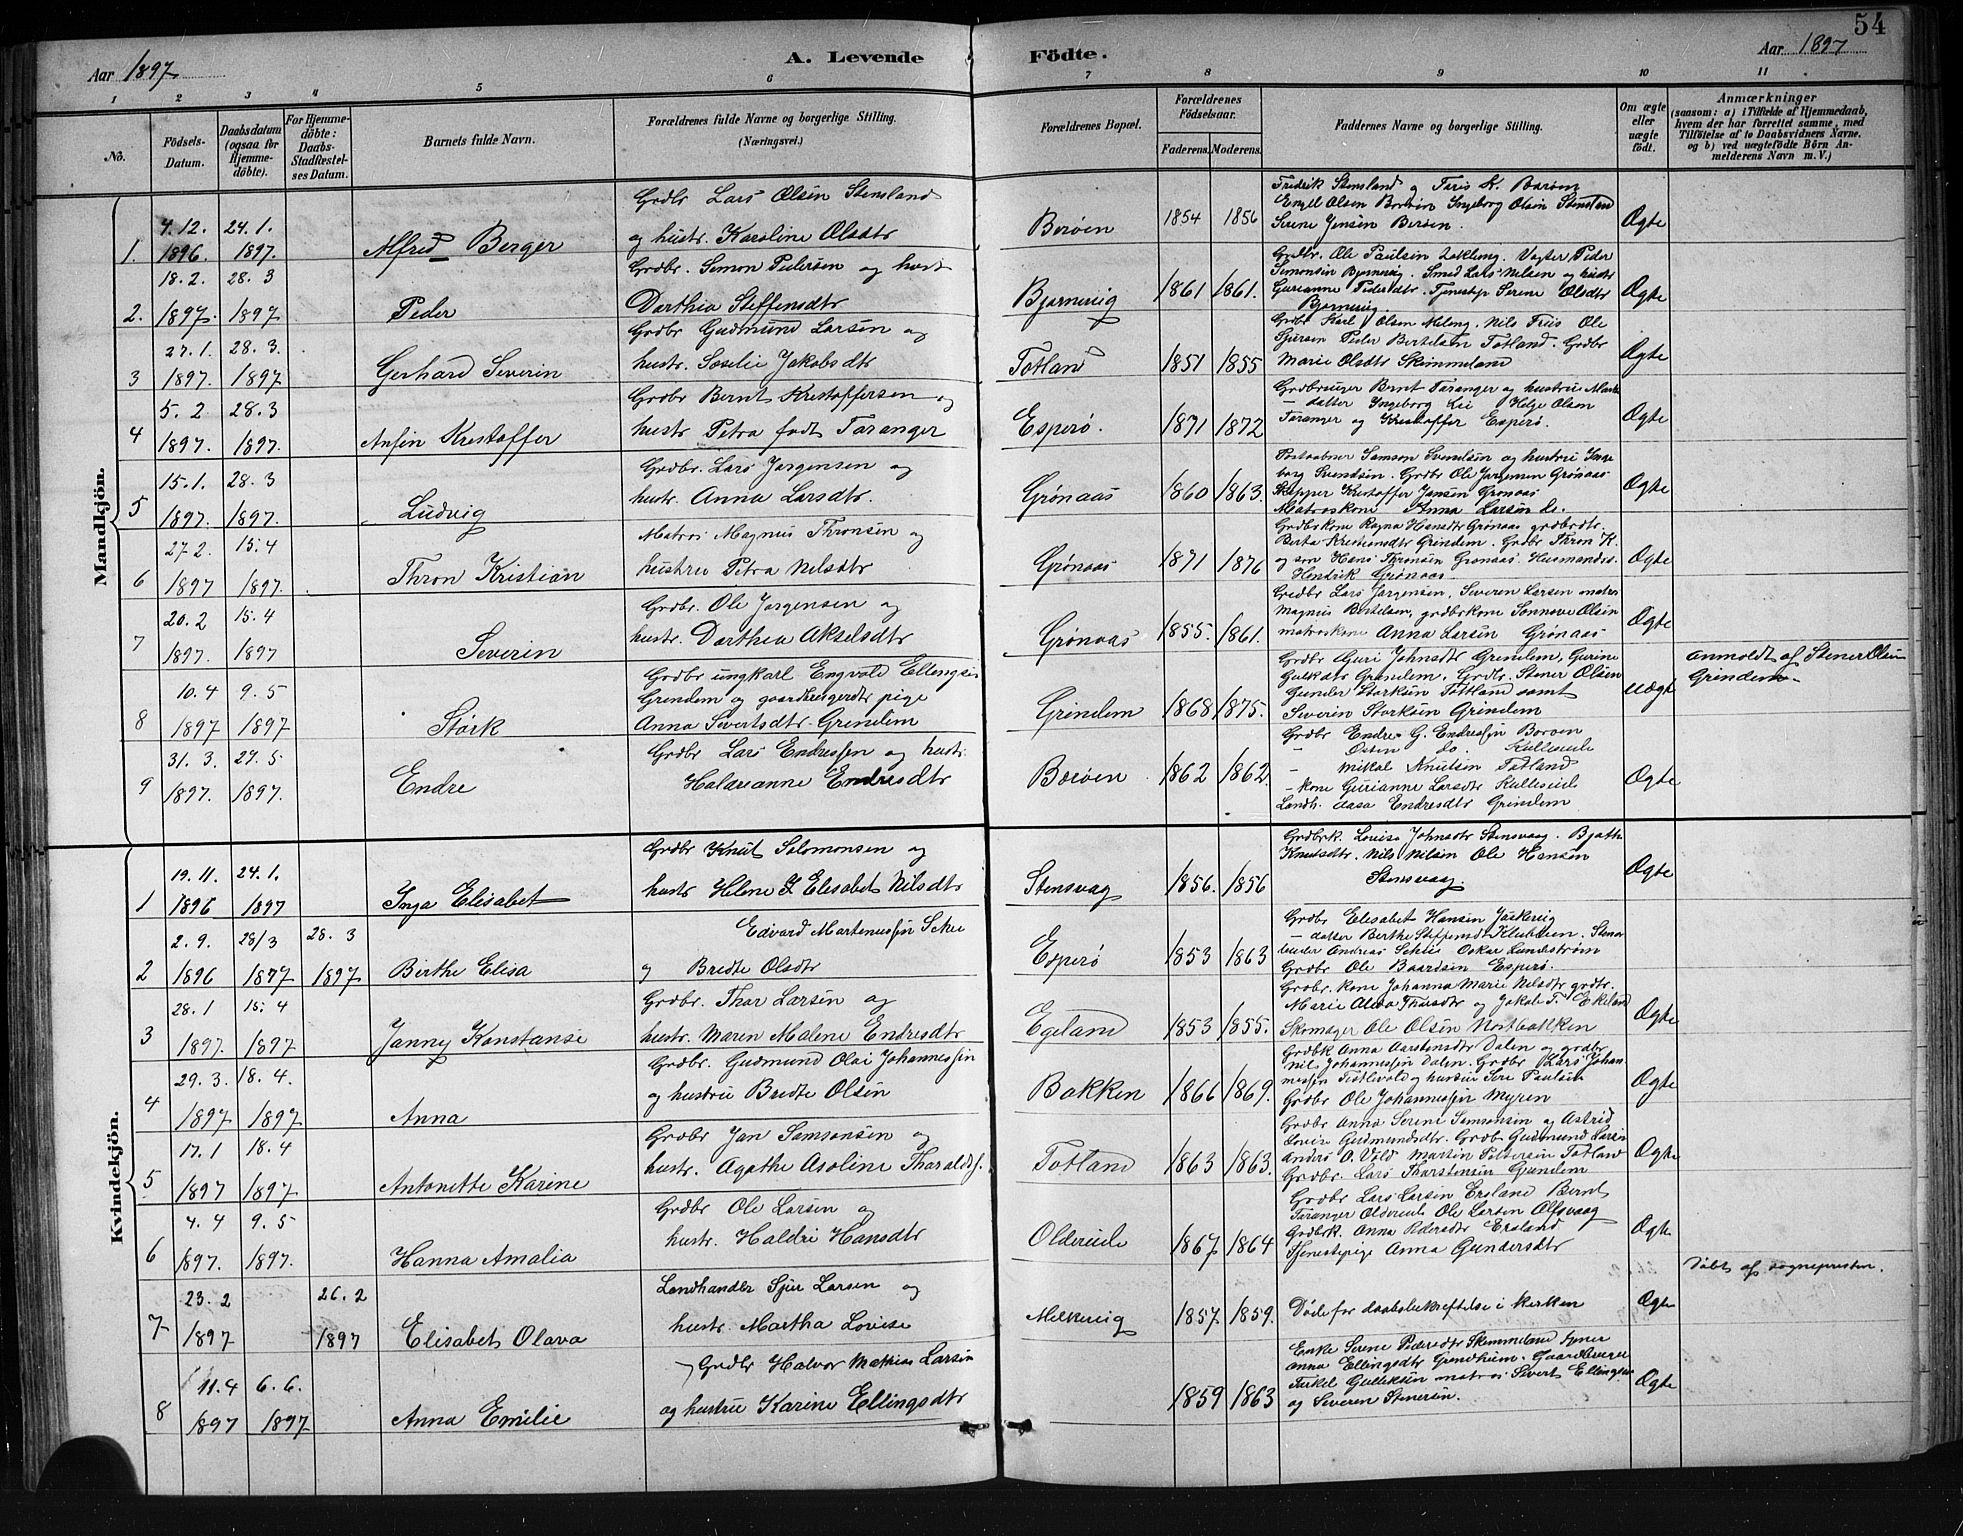 54
Aar 1897
A. Levende
Födte.
Aar 1897
1 2 3 4 5 6 7 8 9 10 11
No.
Födsels-
Datum.
Daabsdatum
(ogsaa for
Hjemme-
döbte).
For Hjemme-
döbte:
Daabs-
Stadfestel-
ses Datum.
Barnets fulde Navn.
Forældrenes fulde Navne og borgerlige Stilling.
(Næringsvei.)
Forældrenes Bopæl.
Forældrenes
Födselsaar.
Faderens. Moderens.
Faddernes Navne og borgerlige Stilling.
Om ægte
eller
uægte
födt.
Anmærkninger
(saasom: a) i Tilfælde af Hjemmedaab,
hvem der har forrettet samme, med
Tilföielse af to Daabsvidners Navne.
og b) ved uægtefödte Börn An-
melderens Navn m. V.)
Mandkjön.
1. 4.12. 1896 24.1. 1897. Alfred Berger
Grdbr Lars Olsen Stensland
og hustr. Karoline Olsdtr
Borøen 1854 1856
Fredrik Stensland og K. Borøen
Engel Olsen Borøen Ingeborg Olsen Stensland
Serene Jensen Borøen.
Ægte
2. 18.2. 1897. 28.3 1897 Peder
Grdbr. Simon Pedersen og hust
Dorthea Steffensdtr
Bjørnevig 1861 1861.
Grdbr. Ole Paulsen Vagter Peder
Simonsen Bjørnevig. Smed Lars Nilsen og hustr
Gurianne Pedersdtr. Tjenestep Serene Olsdtr
Bjørnevig
Ægte
3 27.1. 1897. 28.3. 1897 Gerhard Severin
Grdbr Gudmund Larsen og
hustr. Soselie Jakobsdtr
Totland 1851 1855
Grdbr Karl Olsen Meling. Nils Friis Ole
Sjursen Peder Bertelsen Totland. Grdbr
Marie Olsdtr Skimmeland
Ægte
4 5.2 1897. 28.3 1897. Anfin Kristoffer
Grdbr. Bernt Kristoffersen og
hustr Petra født Taranger
Esperø. 1871 1872
Grdbruger Bernt Taranger og hustru
– datter Ingeborg Lie Helge Olsen
Taranger og Kristoffer Esperø.
Ægte
5 15.1. 1897. 28.3 1897. Ludvig
Grdbr. Lars Jørgensen og
hustr. Anna Larsdtr.
Grønaas 1860 1863.
Postaabner Samson Svendsen og hustru Inge
borg Svendsen. Grdbr Ole Jørgensen Grønaas
Skipper Kristoffer Jansen Grønaas
Matroskone Anna Larsen do.
Ægte
6 27.2. 1897 15.4 1897. Thron Kristian
Matros Magnus Thronsen og
hustru Petra Nilsdtr
Grønaas 1871 1876
Grdbrkone Ragna Hansdtr Grønaas grdbrdtr.
Berta Kristiansdtr Grindem. Grdbr Thron K.
og søn Hans Thronsen Grønaas. Husmandss.
Hendrik Grønaas
Ægte
7 20.2 1897. 15.4 1897 Severin
Grdbr. Ole Jørgensen og
hustr. Dorthea Akselsdtr
Grønaas 1855. 1861.
Grdbr Lars Jørgensen, Severin Larsen matros
Magnus Bertelsen, grdbrkone Sønneve Olsen
matroskone Anna Larsen Grønaas
Ægte
8 10.4 1897 9.5 1897 Størk
Grdbr ungkarl Engvald Ellingsen
Grindem og gaardbrugerdtr pige
Anna Sivertsdtr Grindem
Grindem 1868 1875.
Grdbr Guri Johnsdtr Grindem, Gurine
Grindem. Grdbr. Stener Olsen
Gunder Størksen Totland samt
Severin Størksen Grindem
uægte
anmeldt af Stener Olsen
Grindem.
9 31.3. 1897. 27.5 1897. Endre
Grdbr Lars Endressen og hustr.
Haldorianne Endresdtr
Borøen 1862 1862.
Grdbr Endre G. Endressen Borøen
– Østen do. Kulleseid
– Mikal Knutsen Totland
– kone Gurianne Larsdtr Kulleseid
Landh. Aasa Endresdtr Grindem
Ægte
Kvindekjön.
1 19.11. 1896 24.1. 1897 Inga Elisabet
Grdbr Knut Salomonsen og
hustr Helene J Elisabet Nilsdtr
Stensvaag 1856. 1856
Grdbrk. Lovise Johnsdtr Stensvaag.
Knutsdtr. Nils Nilsen Ole Hansen
Stensvaag.
Ægte
2 2.9. 1896 28/3 1897 28.3 1897 Birthe Elisa
Edvard Martinussen
og Bredte Olsdtr
Esperø 1853 1863
Grdbr Elisabet Hansen
– datter Berthe
Andreas Oskar Lundstrøm
Grdbr Ole Baardsen Esperø.
3 28.1 1897. 15.4 1897 Janny Konstanse
Grdbr. Thor Larsen og
hustr. Maren Malene Endresdtr
Egeland 1853 1855.
Grdbr. kone Johanna Marie Nilsdtr grdtr.
Marie Olava Thorsdtr og Jakob T. Ekeland
Skomager Ole Olsen Nordbakken
Ægte
4 29.3. 1897 18.4. 1897 Anna
Grdbr. Gudmund Olai Johannessen
og hustru Bredte Olsen
Bakken 1866 1869.
Grdbk Anna Aarstensdtr Dalen og grdbr
Nils Johannessen Dalen. Grdbr Lars Johan
nessen og hustru Siri Paulsen
Grdbr Ole Johannessen Myren
Ægte
5 17.1 1897 18.4 1897 Antonette Karine
Grdbr Jan Samsonsen og
hustr. Agathe Asoline Tharaldss.
Totland 1863 1863.
Grdbr Anna Serene Samsonsen og Astrid
Lovise Gudmundsdtr. Grdb Gudmund Larsen
O. Vold Martin Pettersen Totland
Grdbr. Lars Tharstensen Grindem
Ægte
6 4.4 1897. 9.5 1897. Hanna Amalia
Grdbr Ole Larsen og
hustr. Haldri Hansdtr
Oldereide 1867 1864
Grdbr Lars Larsen Ersland Bernt
Taranger Oldereide Ole Larsen Olfsvaag
Grdbrk. Anna Pedersdtr Ersland
Tjenestepige Anna Gundersdtr
Ægte
7 23.2 1897 26.2 1897 Elisabet Olava
Landhandlr Sjur Larsen og
hustr. Martha Lovise
Melkevig 1857 1859.
Døde før daabsbekræftelse i kirken
Ægte
Døbt af sognepresten.
8 11.4 1897 6.6. 1897 Anna Emilie
Grdbr Halvor Mathias Larsen
og hustru Karine Ellingsdtr
1859 1863
Enke Serene Pedersdtr Skimmeland
Anna Ellingsdtr Grindheim. Gaardbruger
Torkel Gulliksen matros Sivert Ellingsen
og Severin Stenersen.
Ægte